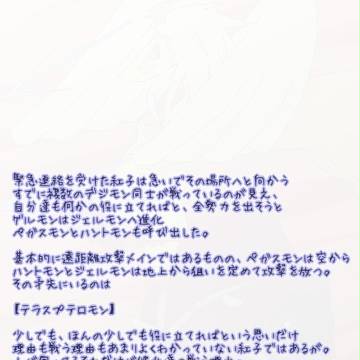 緊急連絡を受けた紅子は急いでその場所へと向かう
すでに複数のデジモン同士が戦っているのが見え、
自分達も何かの役に立てればと、全努力を出そうと
ゲルモンはジェルモンへ進化
ペガスモンとハントモンも呼び出した。
基本的に遠距離攻撃メインではあるものの、ペガスモンは空から
ハントモンとジェルモンは地上から狙いを定めて攻撃を放つ。
その矛先にいるのは
【テラスプテロモン】
少しでも、ほんの少しでも役に立てればという思いだけ
理由も戦う理由もあまりよくわかっていない紅子ではあるが。